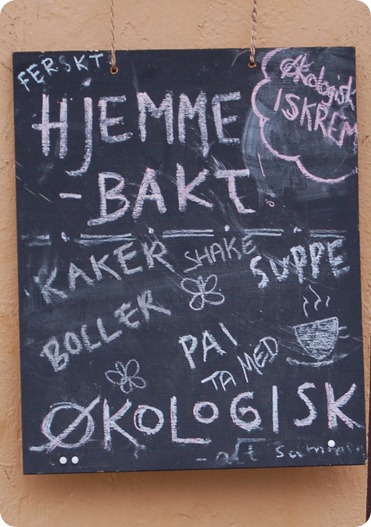 FERSKT
Økologisk
ISKREM
HJEMME
-BAKT
KAKER SHAKE SUPPE
BOLLER
PAI
TA MED
ØKOLOGISK
- alt sammen